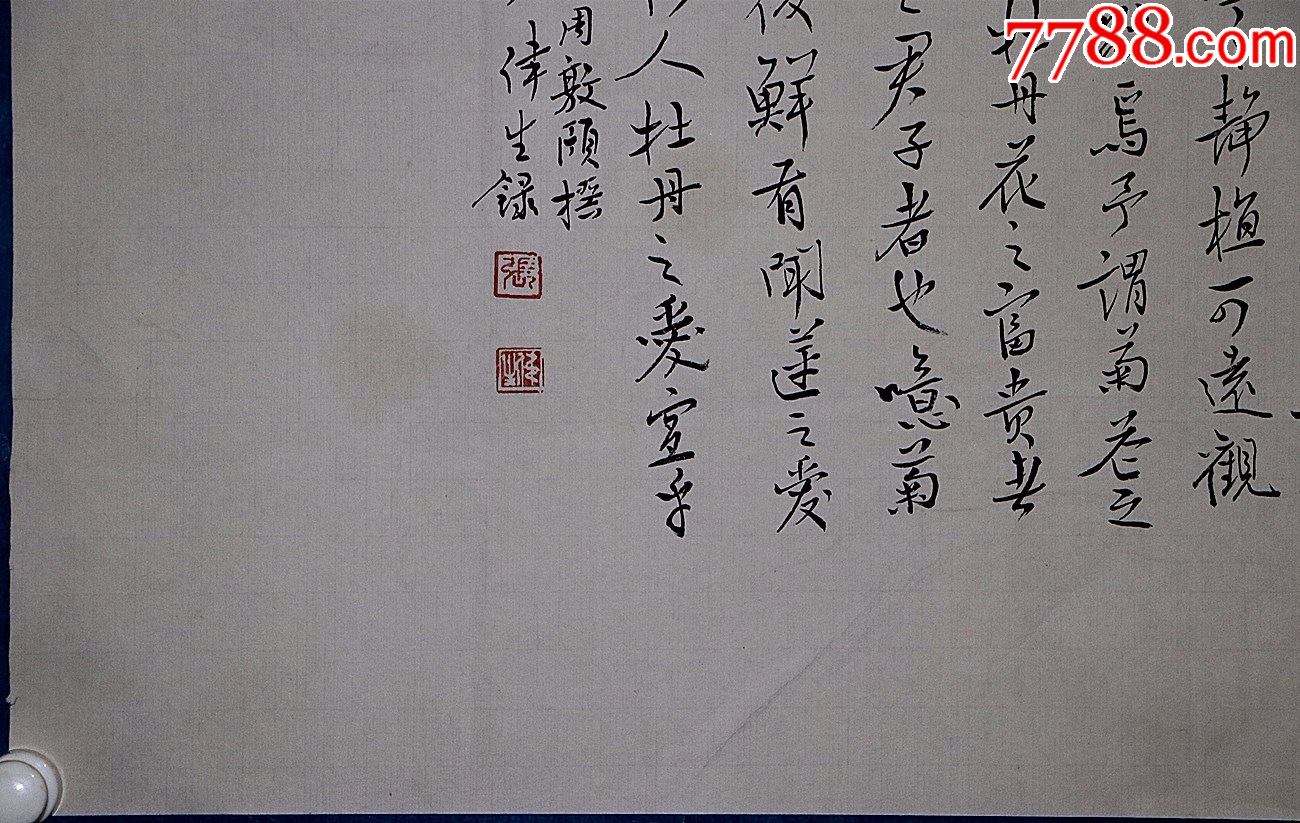 7788.com
静植可遠觀
焉予謂菊花之
牡丹花之富貴者
之君子者也噫菊
後鮮有聞蓮之愛
人牡丹之愛宜乎
周敦頤撰
偉生録
張
偉生